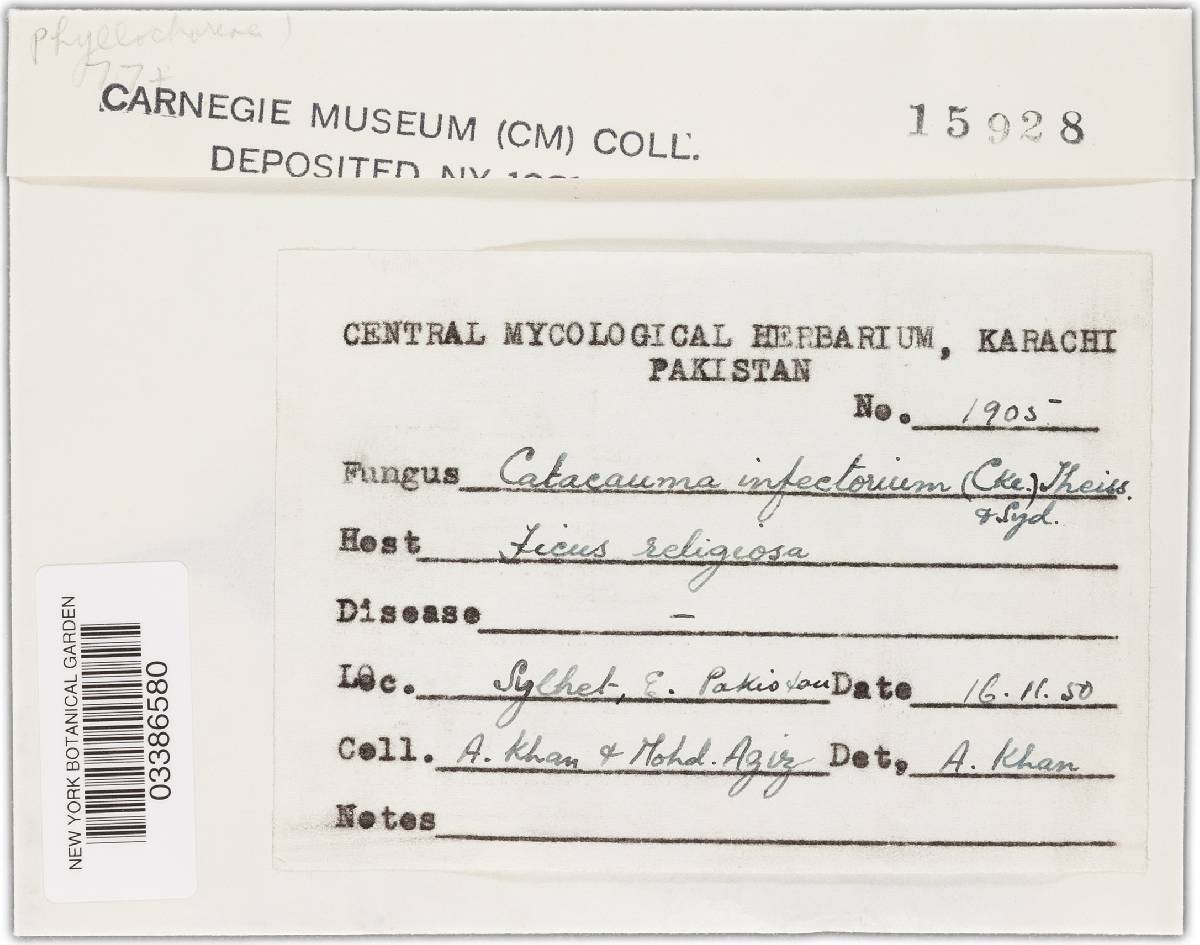 CARNEGIE MUSEUM (CM) COLL.
DEPOSITED NY
15928
CENTRAL MYCOLOGICAL HERBARIUM, KARACHI
PAKISTAN
No. 1905
Fungus Catacauma infectorium (Cke.) Theiss.
& Syd.
Host Ficus religiosa
Disease -
Loc. Sylhet, E. Pakistan Date 16.11.50
Coll. A. Khan & Mohd. Aziz Det, A. Khan
Notes
NEW YORK BOTANICAL GARDEN
03386580